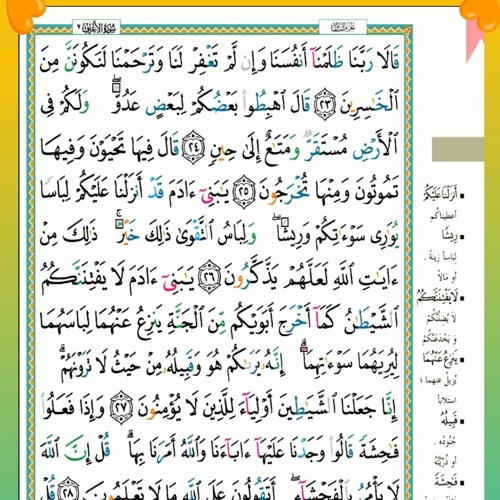 سُورَةُ الأَعْرَافِ ٧
قَالَا رَبَّنَا ظَلَمْنَآ أَنفُسَنَا وَإِن لَّمْ تَغْفِرْ لَنَا وَتَرْحَمْنَا لَنَكُونَنَّ مِنَ
ٱلْخَٰسِرِينَ ٢٣ قَالَ ٱهْبِطُوا۟ بَعْضُكُمْ لِبَعْضٍ عَدُوٌّ ۖ وَلَكُمْ فِى
ٱلْأَرْضِ مُسْتَقَرٌّ وَمَتَٰعٌ إِلَىٰ حِينٍ ٢٤ قَالَ فِيهَا تَحْيَوْنَ وَفِيهَا
تَمُوتُونَ وَمِنْهَا تُخْرَجُونَ ٢٥ يَٰبَنِىٓ ءَادَمَ قَدْ أَنزَلْنَا عَلَيْكُمْ لِبَاسًا
يُوَٰرِى سَوْءَٰتِكُمْ وَرِيشًا ۖ وَلِبَاسُ ٱلتَّقْوَىٰ ذَٰلِكَ خَيْرٌ ۚ ذَٰلِكَ مِنْ
ءَايَٰتِ ٱللَّهِ لَعَلَّهُمْ يَذَّكَّرُونَ ٢٦ يَٰبَنِىٓ ءَادَمَ لَا يَفْتِنَنَّكُمُ
ٱلشَّيْطَٰنُ كَمَآ أَخْرَجَ أَبَوَيْكُم مِّنَ ٱلْجَنَّةِ يَنزِعُ عَنْهُمَا لِبَاسَهُمَا
لِيُرِيَهُمَا سَوْءَٰتِهِمَآ ۗ إِنَّهُۥ يَرَىٰكُمْ هُوَ وَقَبِيلُهُۥ مِنْ حَيْثُ لَا تَرَوْنَهُمْ ۗ
إِنَّا جَعَلْنَا ٱلشَّيَٰطِينَ أَوْلِيَآءَ لِلَّذِينَ لَا يُؤْمِنُونَ ٢٧ وَإِذَا فَعَلُوا۟
فَٰحِشَةً قَالُوا۟ وَجَدْنَا عَلَيْهَآ ءَابَآءَنَا وَٱللَّهُ أَمَرَنَا بِهَا ۗ قُلْ إِنَّ ٱللَّهَ
لَا يَأْمُرُ بِٱلْفَحْشَآءِ ۖ أَتَقُولُونَ عَلَى ٱللَّهِ مَا لَا تَعْلَمُونَ ٢٨ قُلْ
أَنزَلْنَا عَلَيْكُمْ
أعطيناكم
رِيشًا
لِبَاساً زينةً .
أو مَالاً
لَا يَفْتِنَنَّكُمُ
لَا يُضِلَّنَّكُمْ
وَ يَخْدَعَنَّكُمْ
يَنزِعُ عَنْهُمَا
يُزِيلُ عنهما ؛
استلاباً
قَبِيلُهُ
جُنُودُه .
أو ذُرِّيَّتُه
فَٰحِشَةً